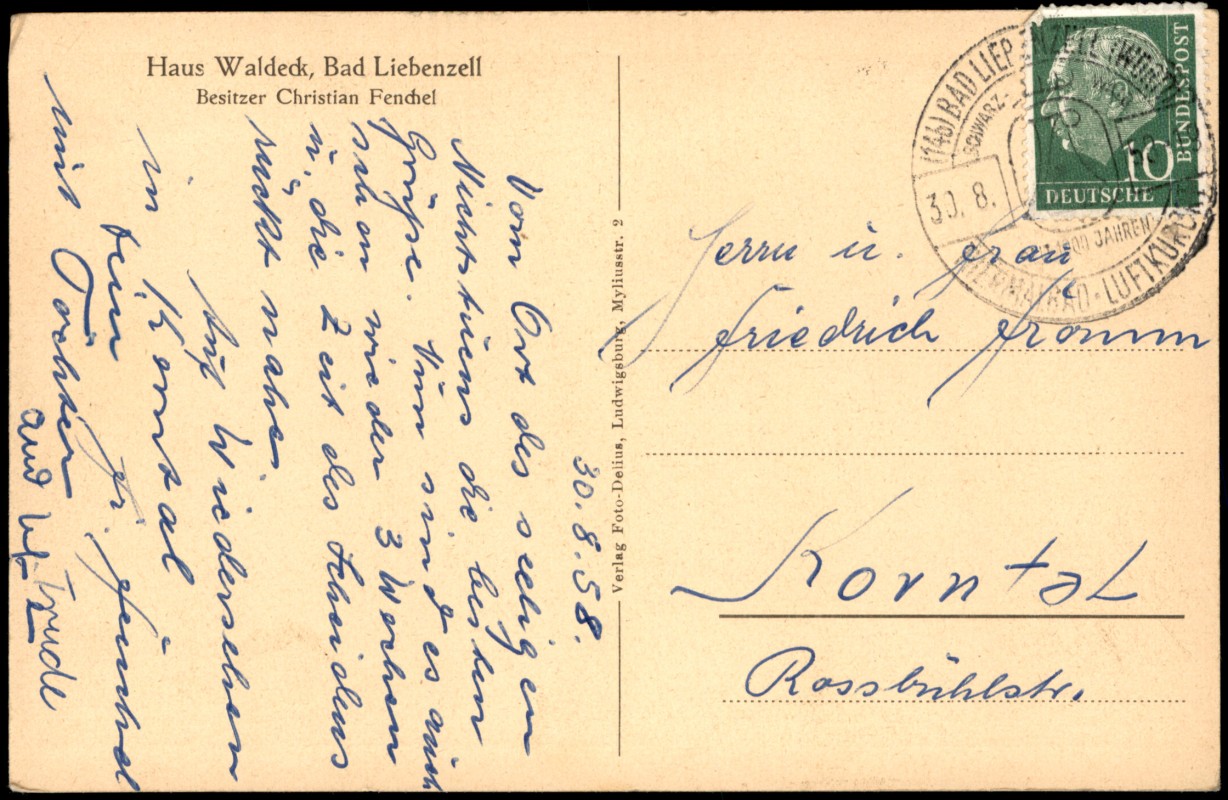 Haus Waldeck, Bad Liebenzell
Besitzer Christian Fenchel
30. 8. 58.
Vom Ort des seeligen
Nichtstuens die besten
Grüße. Nun sind es auch
schon wieder 3 Wochen
u. die Zeit des Scheidens
rückt näher.
Auf Wiedersehen
in Korntal
Fr.
mit Tochter
und
Trude
Verlag Foto-Delius, Ludwigsburg, Myliusstr. 2
(14b) BAD LIEBENZELL (WÜRTT)
SCHWARZ-
30. 8.
JAHREN
THERMALBAD - LUFTKURORT
BUNDESPOST
10
DEUTSCHE
Herrn u. Frau
Friedrich Fromm
Korntal
Rossbühlstr.